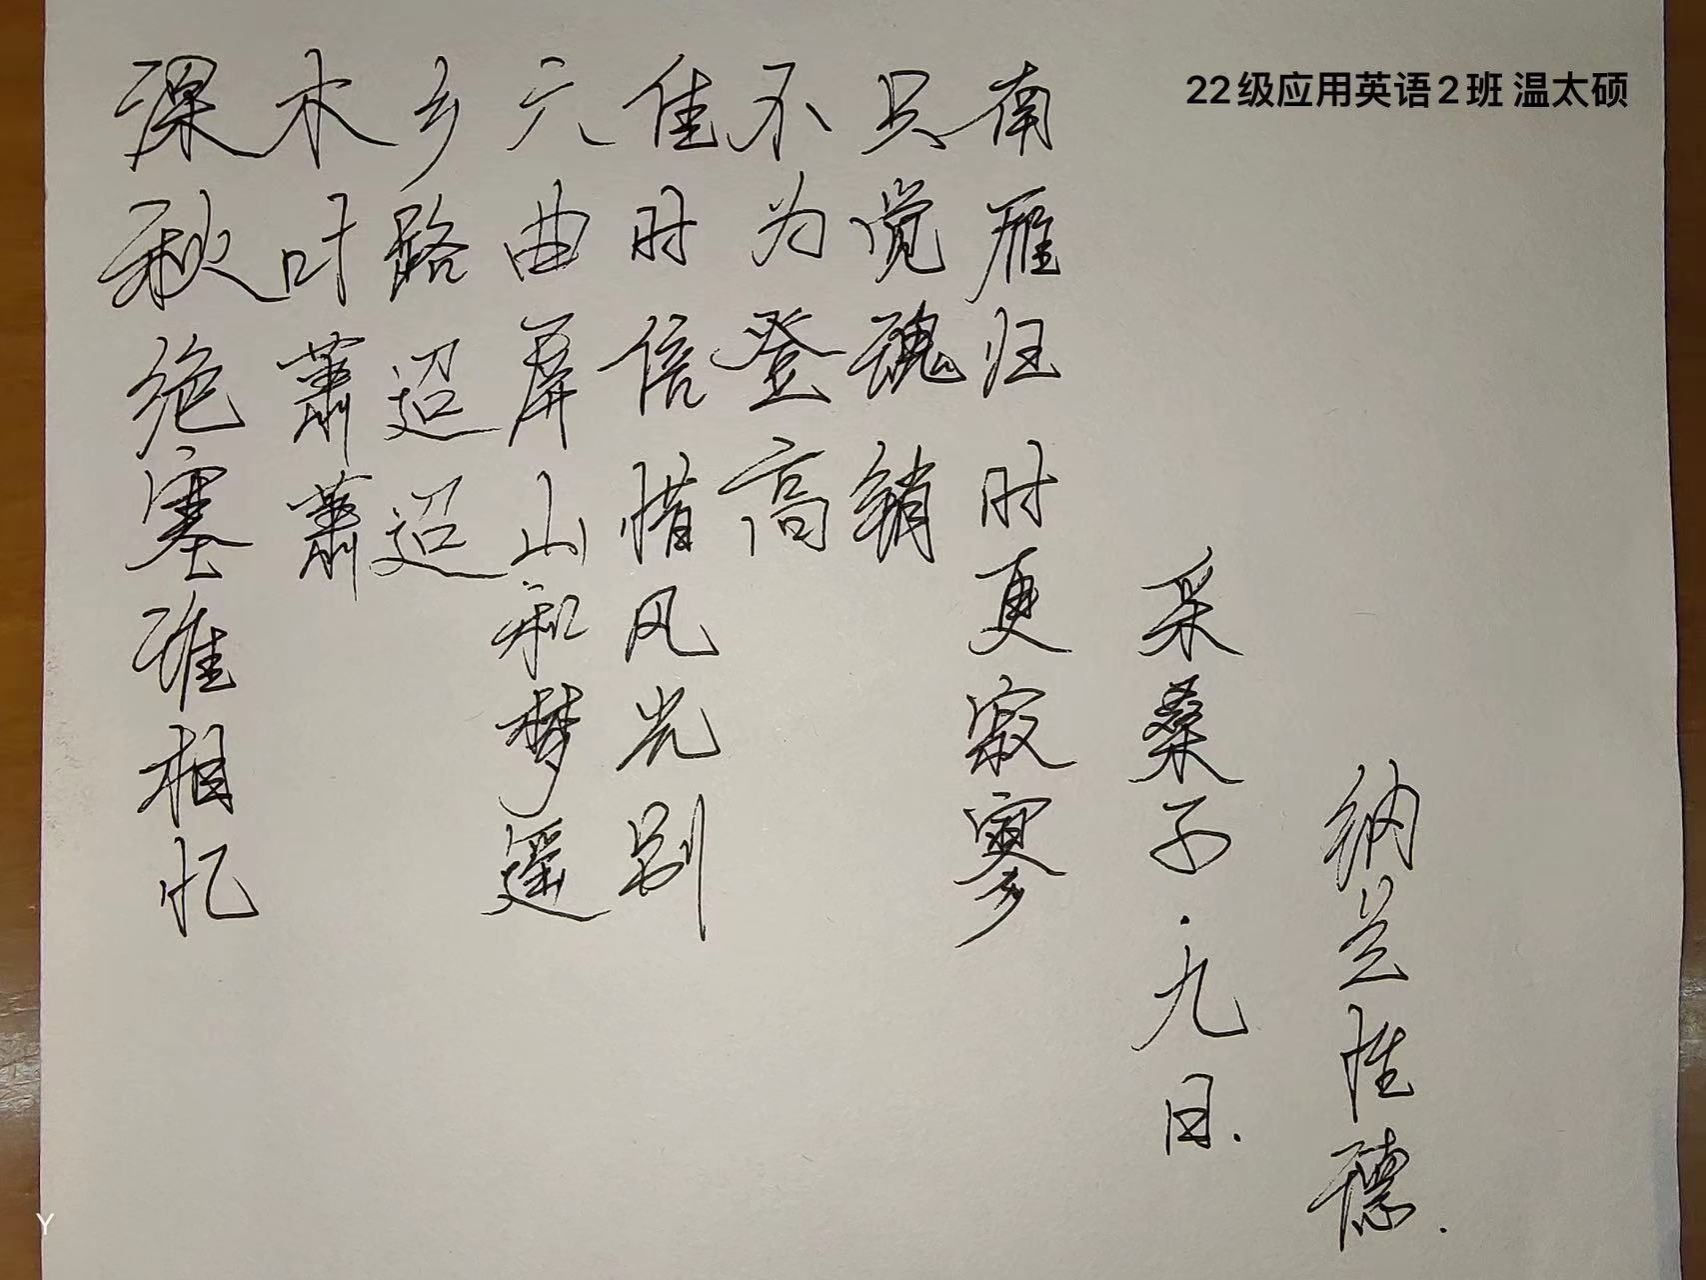 22级应用英语2班 温太硕
深秋绝塞谁相忆
木叶蕭蕭
乡路迢迢
六曲屏山和梦遥
佳时倍惜风光别
不为登高
只觉魂销
南雁归时更寂寥
采桑子·九日.
纳兰性德.
Y